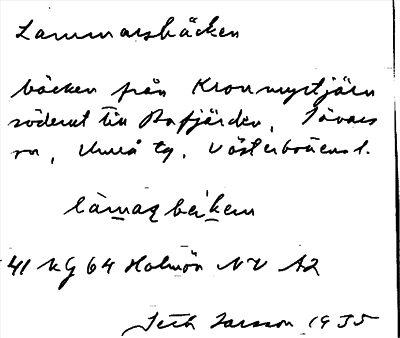 Lammarsbäcken
bäcken från Kronmyrtjärn
söderut till Bofjärden, Sävars
sn, Umeå tg, Västerbottens l.
lamaz beikem
41 NG 64 Holmön NV A2
Seth Larsson 1935